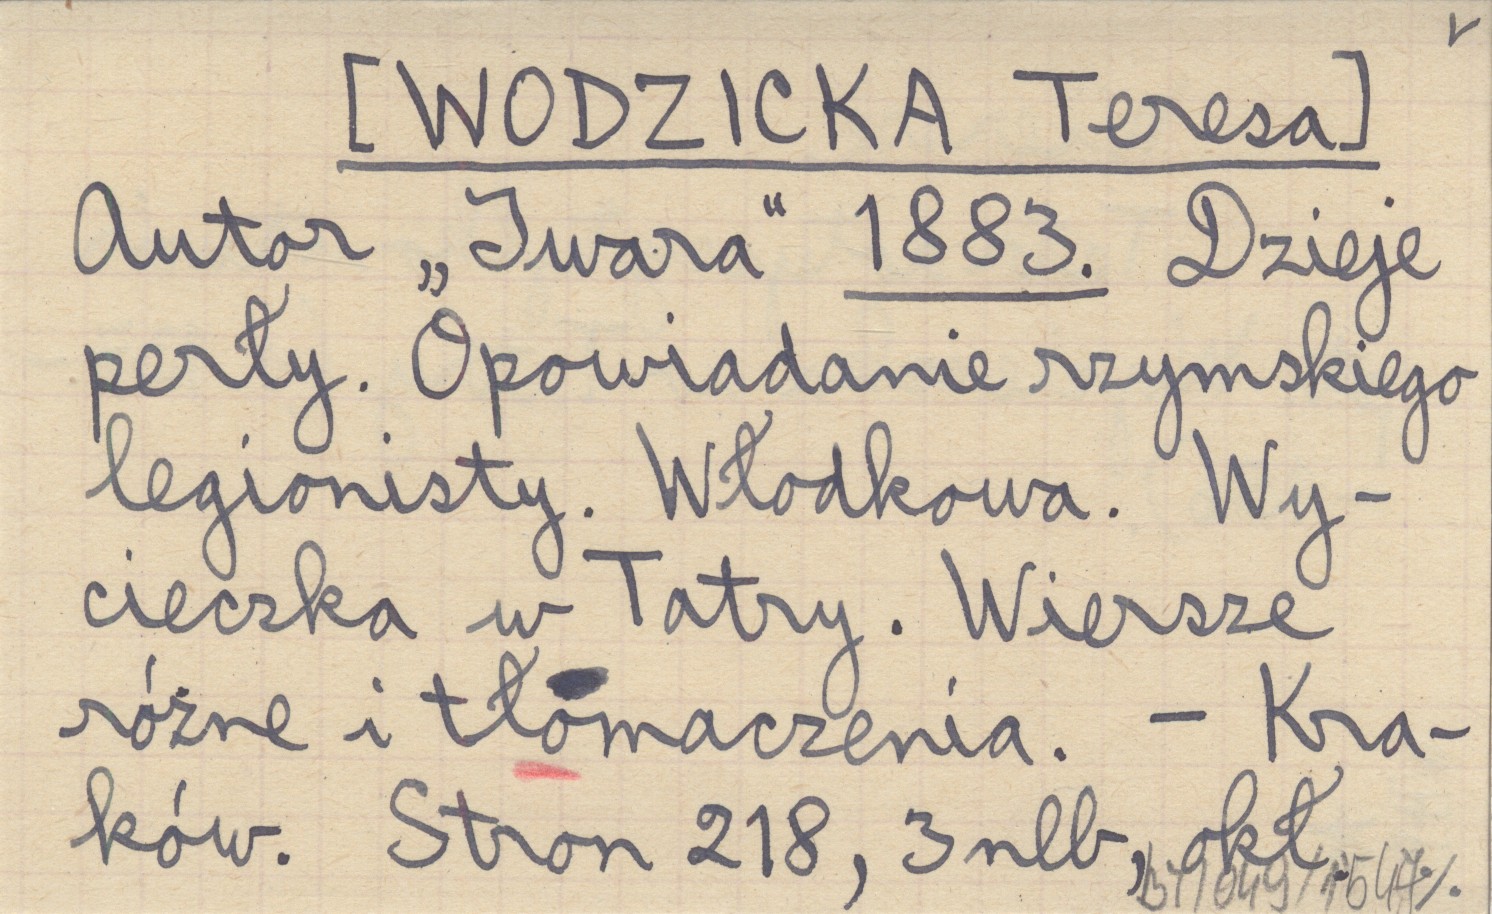 [WODZICKA Teresa]
Autor „Iwara“ 1883. Dzieje
perły. Opowiadanie rzymskiego
legionisty. Włodkowa. Wy-
cieczka w Tatry. Wiersze
różne i tłomaczenia. — Kra-
ków. Stron 218, 3 nlb, okł.